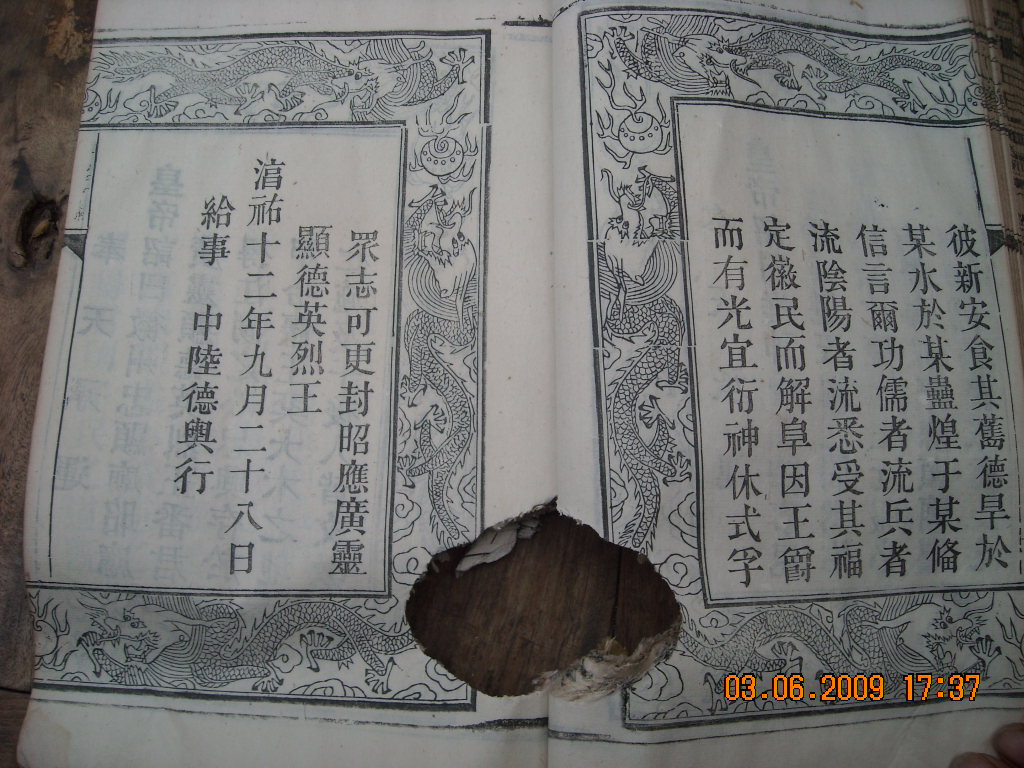 彼新安食其舊德旱於
某水於某蠱煌于某俻
信言爾功儒者流兵者
流陰陽者流悉受其福
定徽民而解阜因王爵
而有光宜衍神休式孚
眾志可更封昭應廣靈
顯德英烈王
淯祐十二年九月二十八日
給事 中陸德輿行
03.06.2009 17:37